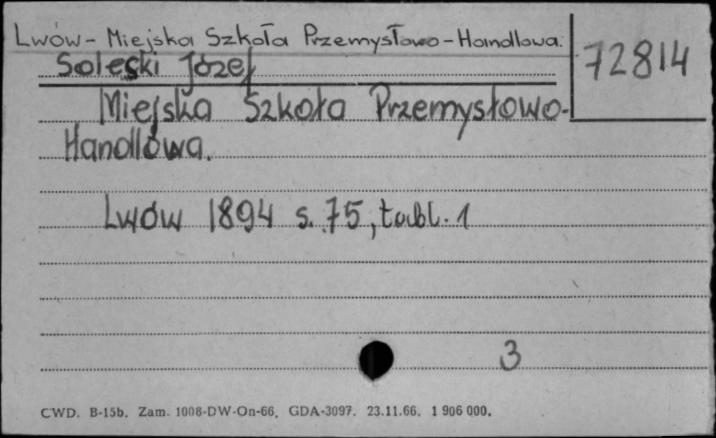 Lwów - Miejska Szkoła Przemysłowo - Handlowa.
72814
Soleski Józef
Miejska Szkoła Przemysłowo-
Handlowa.
Lwów 1894 s. 75, tabl. 1
3
CWD. B-15b. Zam. 1008-DW-On-66. GDA-3097. 23.11.66. 1 906 000.